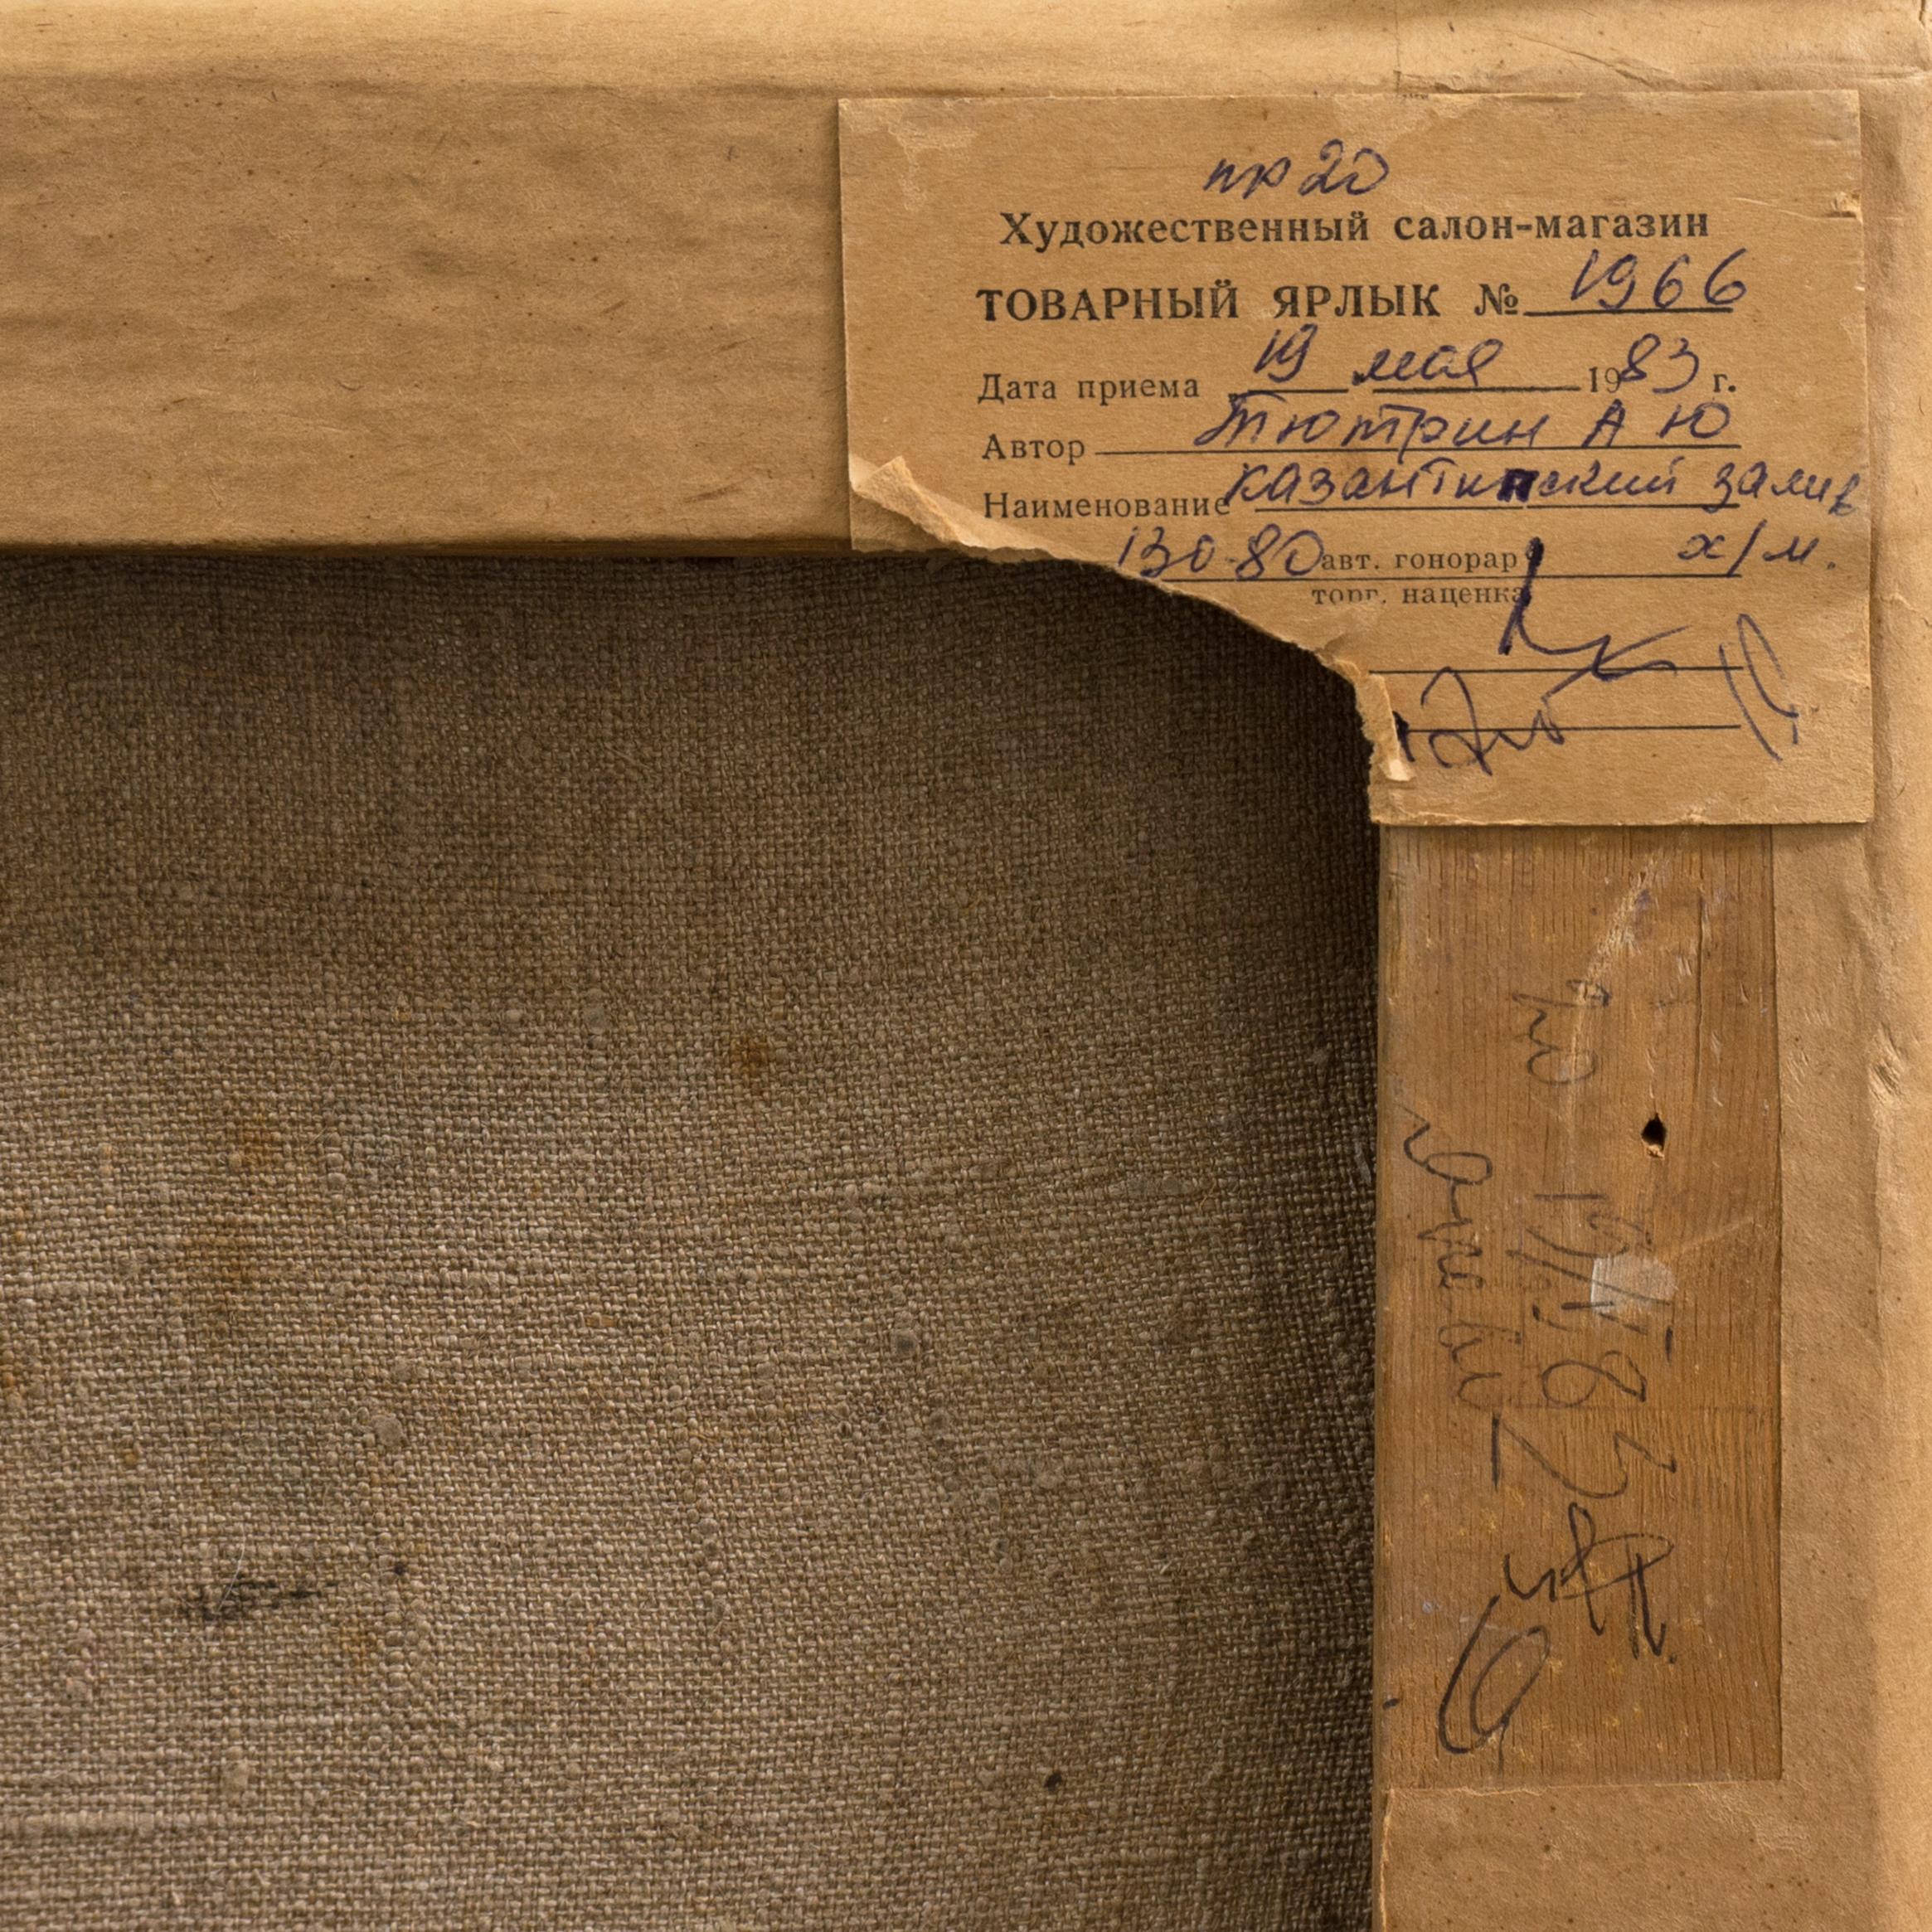 пр 20
Художественный салон-магазин
ТОВАРНЫЙ ЯРЛЫК № 1966
Дата приема 19 мая 1983 г.
Автор Тютрин А Ю
Наименование Казантипский залив
130-80 авт. гонорар х/м.
торг. наценка
19/V 83